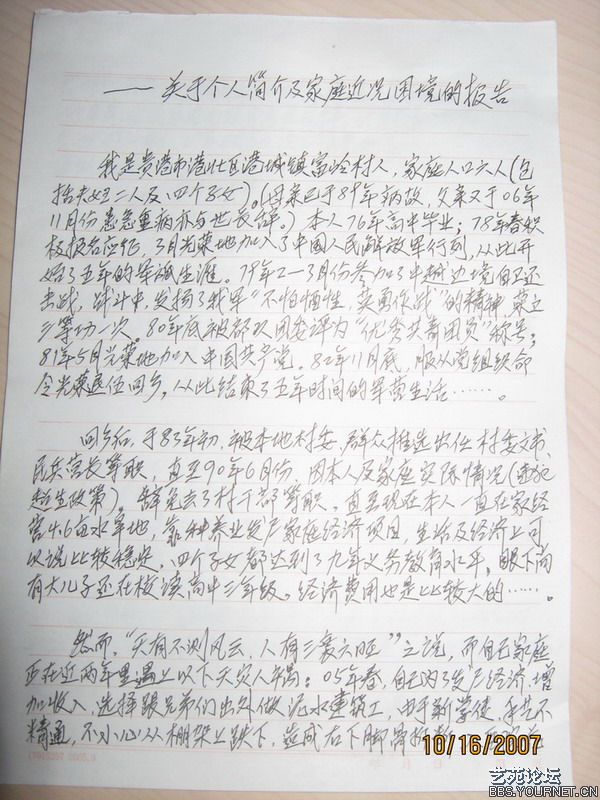 ——关于个人简介及家庭近况困境的报告
我是贵港市港北区港城镇富岭村人，家庭人口六人（包
括夫妇二人及四个子女）。（母亲已于89年病故，父亲又于06年
11月份患急重病亦与世长辞。）本人76年高中毕业；78年春积
极报名应征，3月光荣地加入了中国人民解放军行列，从此开
始了五年的军旅生涯。79年2—3月份参加了中越边境自卫还
击战，战斗中，发扬了我军“不怕牺牲，英勇作战”的精神，荣立
三等功一次。80年底被部队团委评为“优秀共青团员”称号；
81年5月光荣地加入中国共产党。82年11月底，服从党组织命
令光荣退伍回乡，从此结束了五年时间的军营生活……。
回乡后，于83年初，被本地村委、群众推选出任村委文书、
民兵营长等职，直至90年6月份，因本人及家庭实际情况（触犯
超生政策），辞免去了村干部等职。直至现在本人一直在家经
营4.6亩水旱地，靠种养业发产家庭经济项目，生活及经济上可
以说比较稳定，四个子女都达到了九年义务教育水平，眼下尚
有大儿子还在校读高中三年级。经济费用也是比较大的……。
然而，“天有不测风云，人有三衰六旺”之说，而自己家庭
正在近两年里遇上以下天灾人祸：05年春，自己为了发产经济，增
加收入，选择跟兄弟们出外做泥水建筑工，由于新学徒，手艺不
精通，不小心从棚架上跌下，造成右下脚骨折
10/16/2007
艺苑论坛
BBS.YOURNET.CN